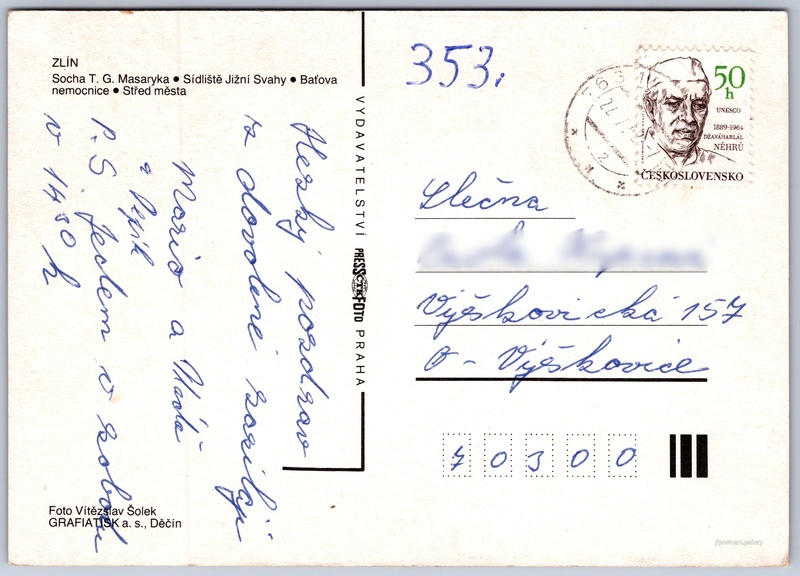 ZLÍN
Socha T. G. Masaryka ● Sídliště Jižní Svahy ● Baťova
nemocnice ● Střed města
Hezký pozdrav
z dovolené zasílají
Mario a
a Pepík
P.S. Jedem v sobotu
v 14.30 h
Foto Vítězslav Šolek
GRAFIATISK a. s., Děčín
VYDAVATELSTVÍ PRESSFOTO PRAHA
ČTK
353.
763 1
22.
2
50
h
UNESCO
1889-1964
DŽAVÁHARLÁL
NÉHRÚ
ČESKOSLOVENSKO
Slečna
Výškovická 157
O - Výškovice
70300